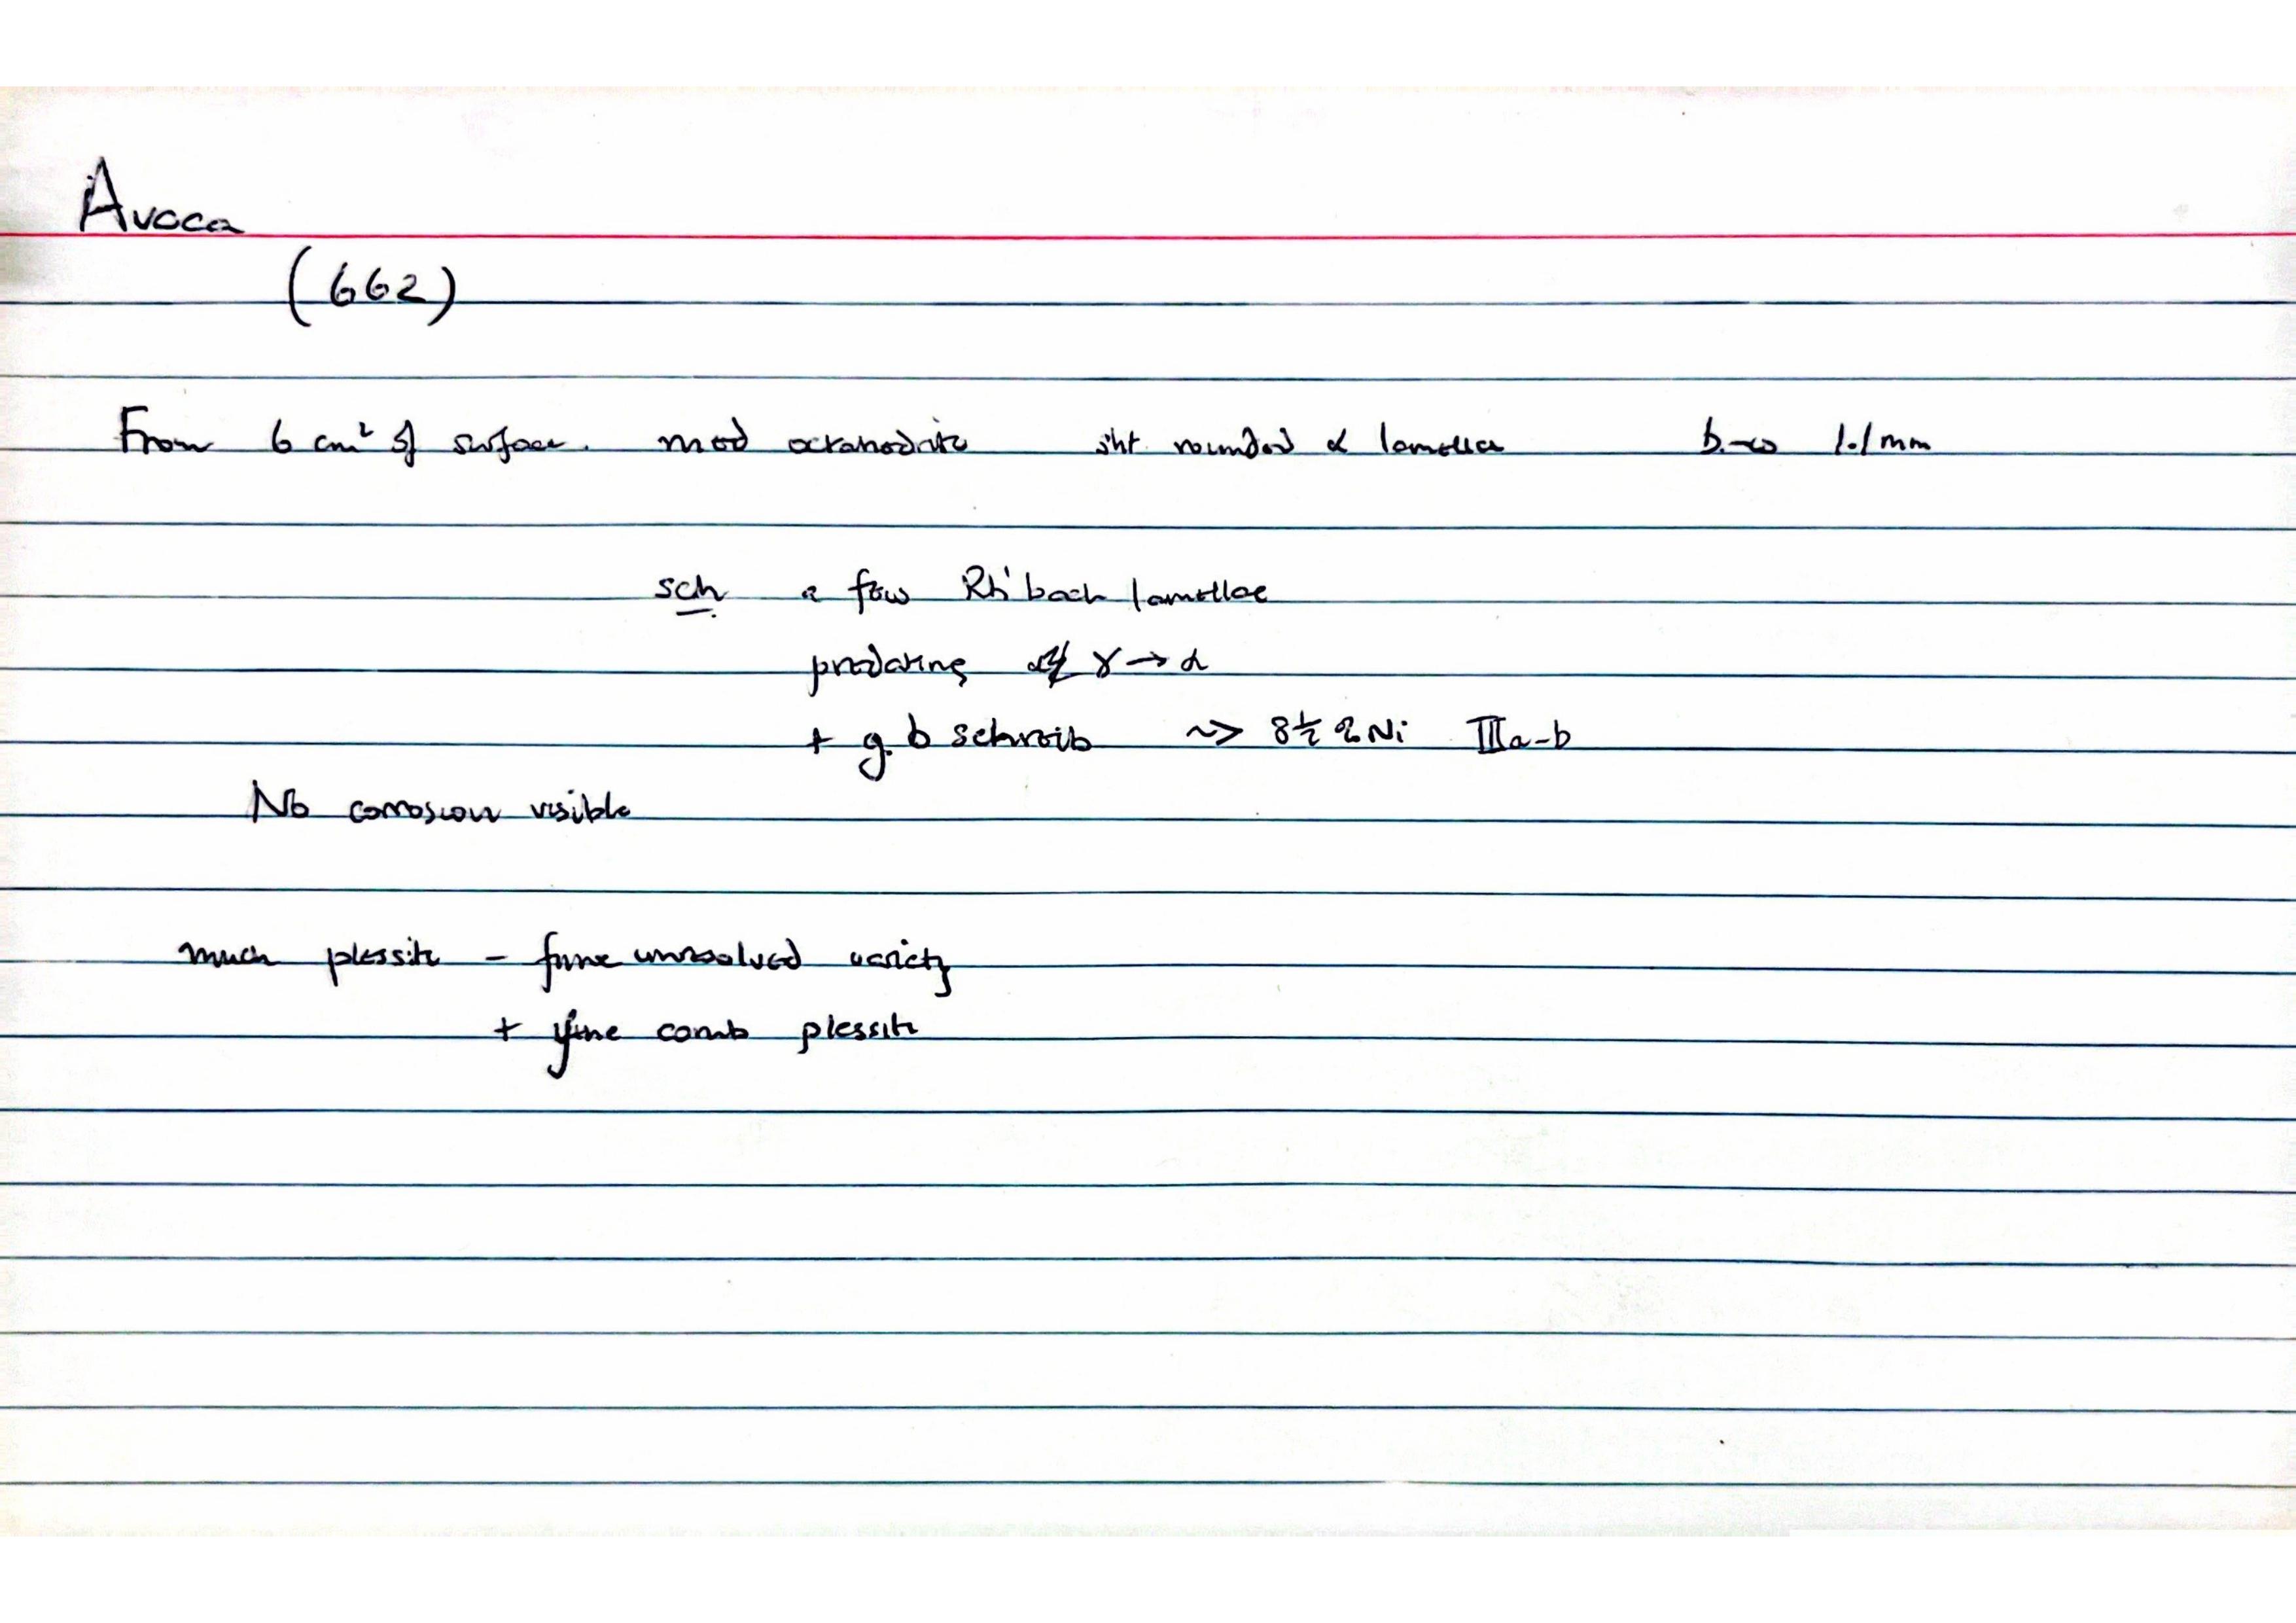 Avoca
(662)
From 6 cm² of surface. med octahedrite sht rounded α lamellae 1.1 mm
sch a few Rh'bach lamellae
predating γ → α
+ g.b schreib ~> 8½ % Ni IIIa-b
No corrosion visible
much plessite - fine unresolved variety
+ fine comb plessite